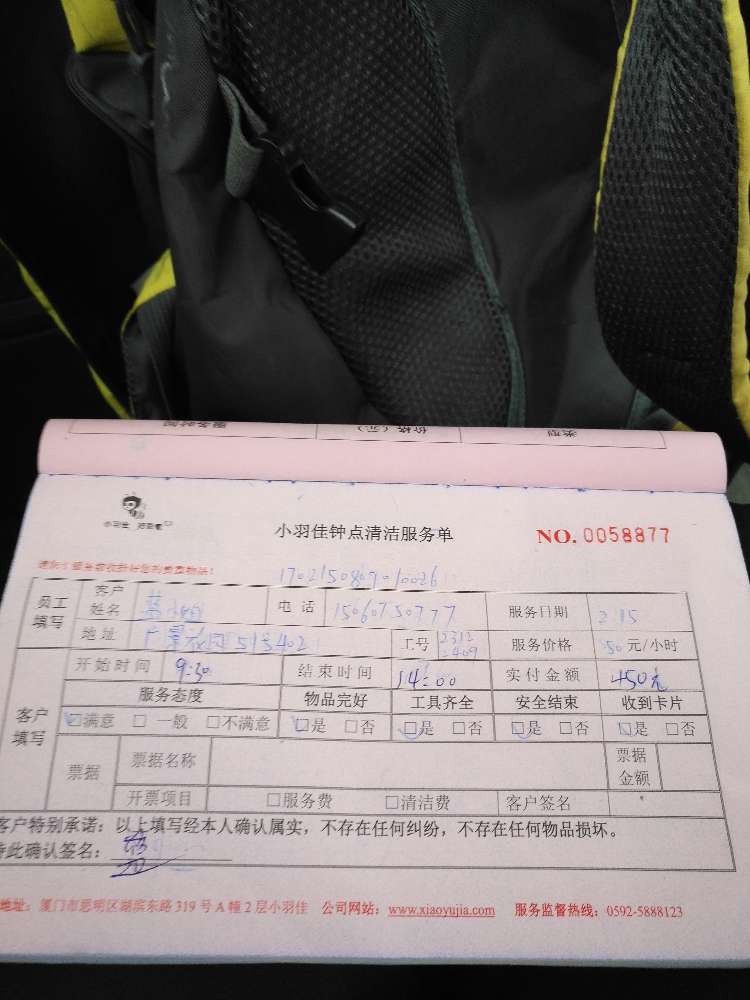 服务时间 价格（元） 类型
小羽佳
小羽佳钟点清洁服务单 NO. 0058877
请队员服务前收拾好您的贵重物品！
170215080910026
员工填写 客户姓名 电话 15060750777 服务日期 2.15
地址 工号 2312 2409 服务价格 50 元/小时
客户填写 开始时间 9:30 结束时间 14:00 实付金额 450元
服务态度 物品完好 工具齐全 安全结束 收到卡片
☑满意 □ 一般 □不满意 ☑是 □否 ☑是 □否 ☑是 □否 ☑是 □否
票据 票据名称 票据金额
开票项目 □服务费 □清洁费 客户签名
客户特别承诺：以上填写经本人确认属实，不存在任何纠纷，不存在任何物品损坏。
特此确认签名：
地址：厦门市思明区湖滨东路 319 号 A 幢 2 层小羽佳 公司网站：www.xiaoyujia.com 服务监督热线：0592-5888123